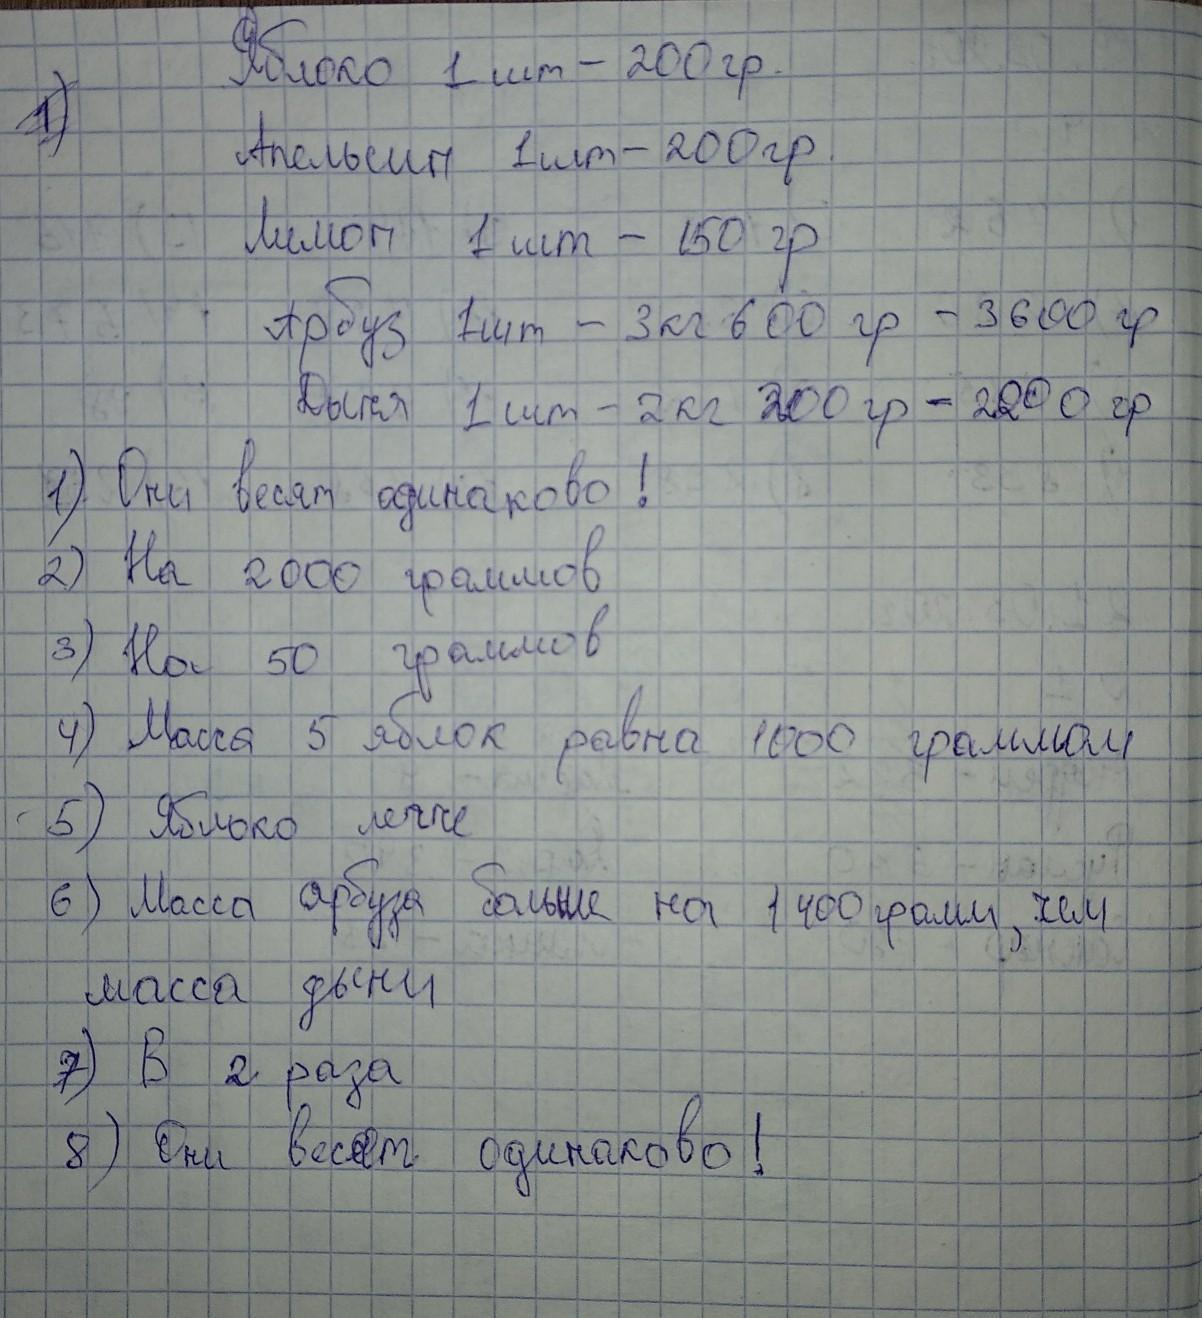 Яблоко 1 шт – 200 гр.
1)
Апельсин 1 шт – 200 гр.
Лимон 1 шт – 150 гр
Арбуз 1 шт – 3 кг 600 гр – 3600 гр
Дыня 1 шт – 2 кг 200 гр – 2200 гр
1) Они весят одинаково!
2) На 2000 граммов
3) На 50 граммов
4) Масса 5 яблок равна 1000 граммам
5) Яблоко легче
6) Масса арбуза больше на 1400 грамм, чем
масса дыни
7) В 2 раза
8) Они весят одинаково!